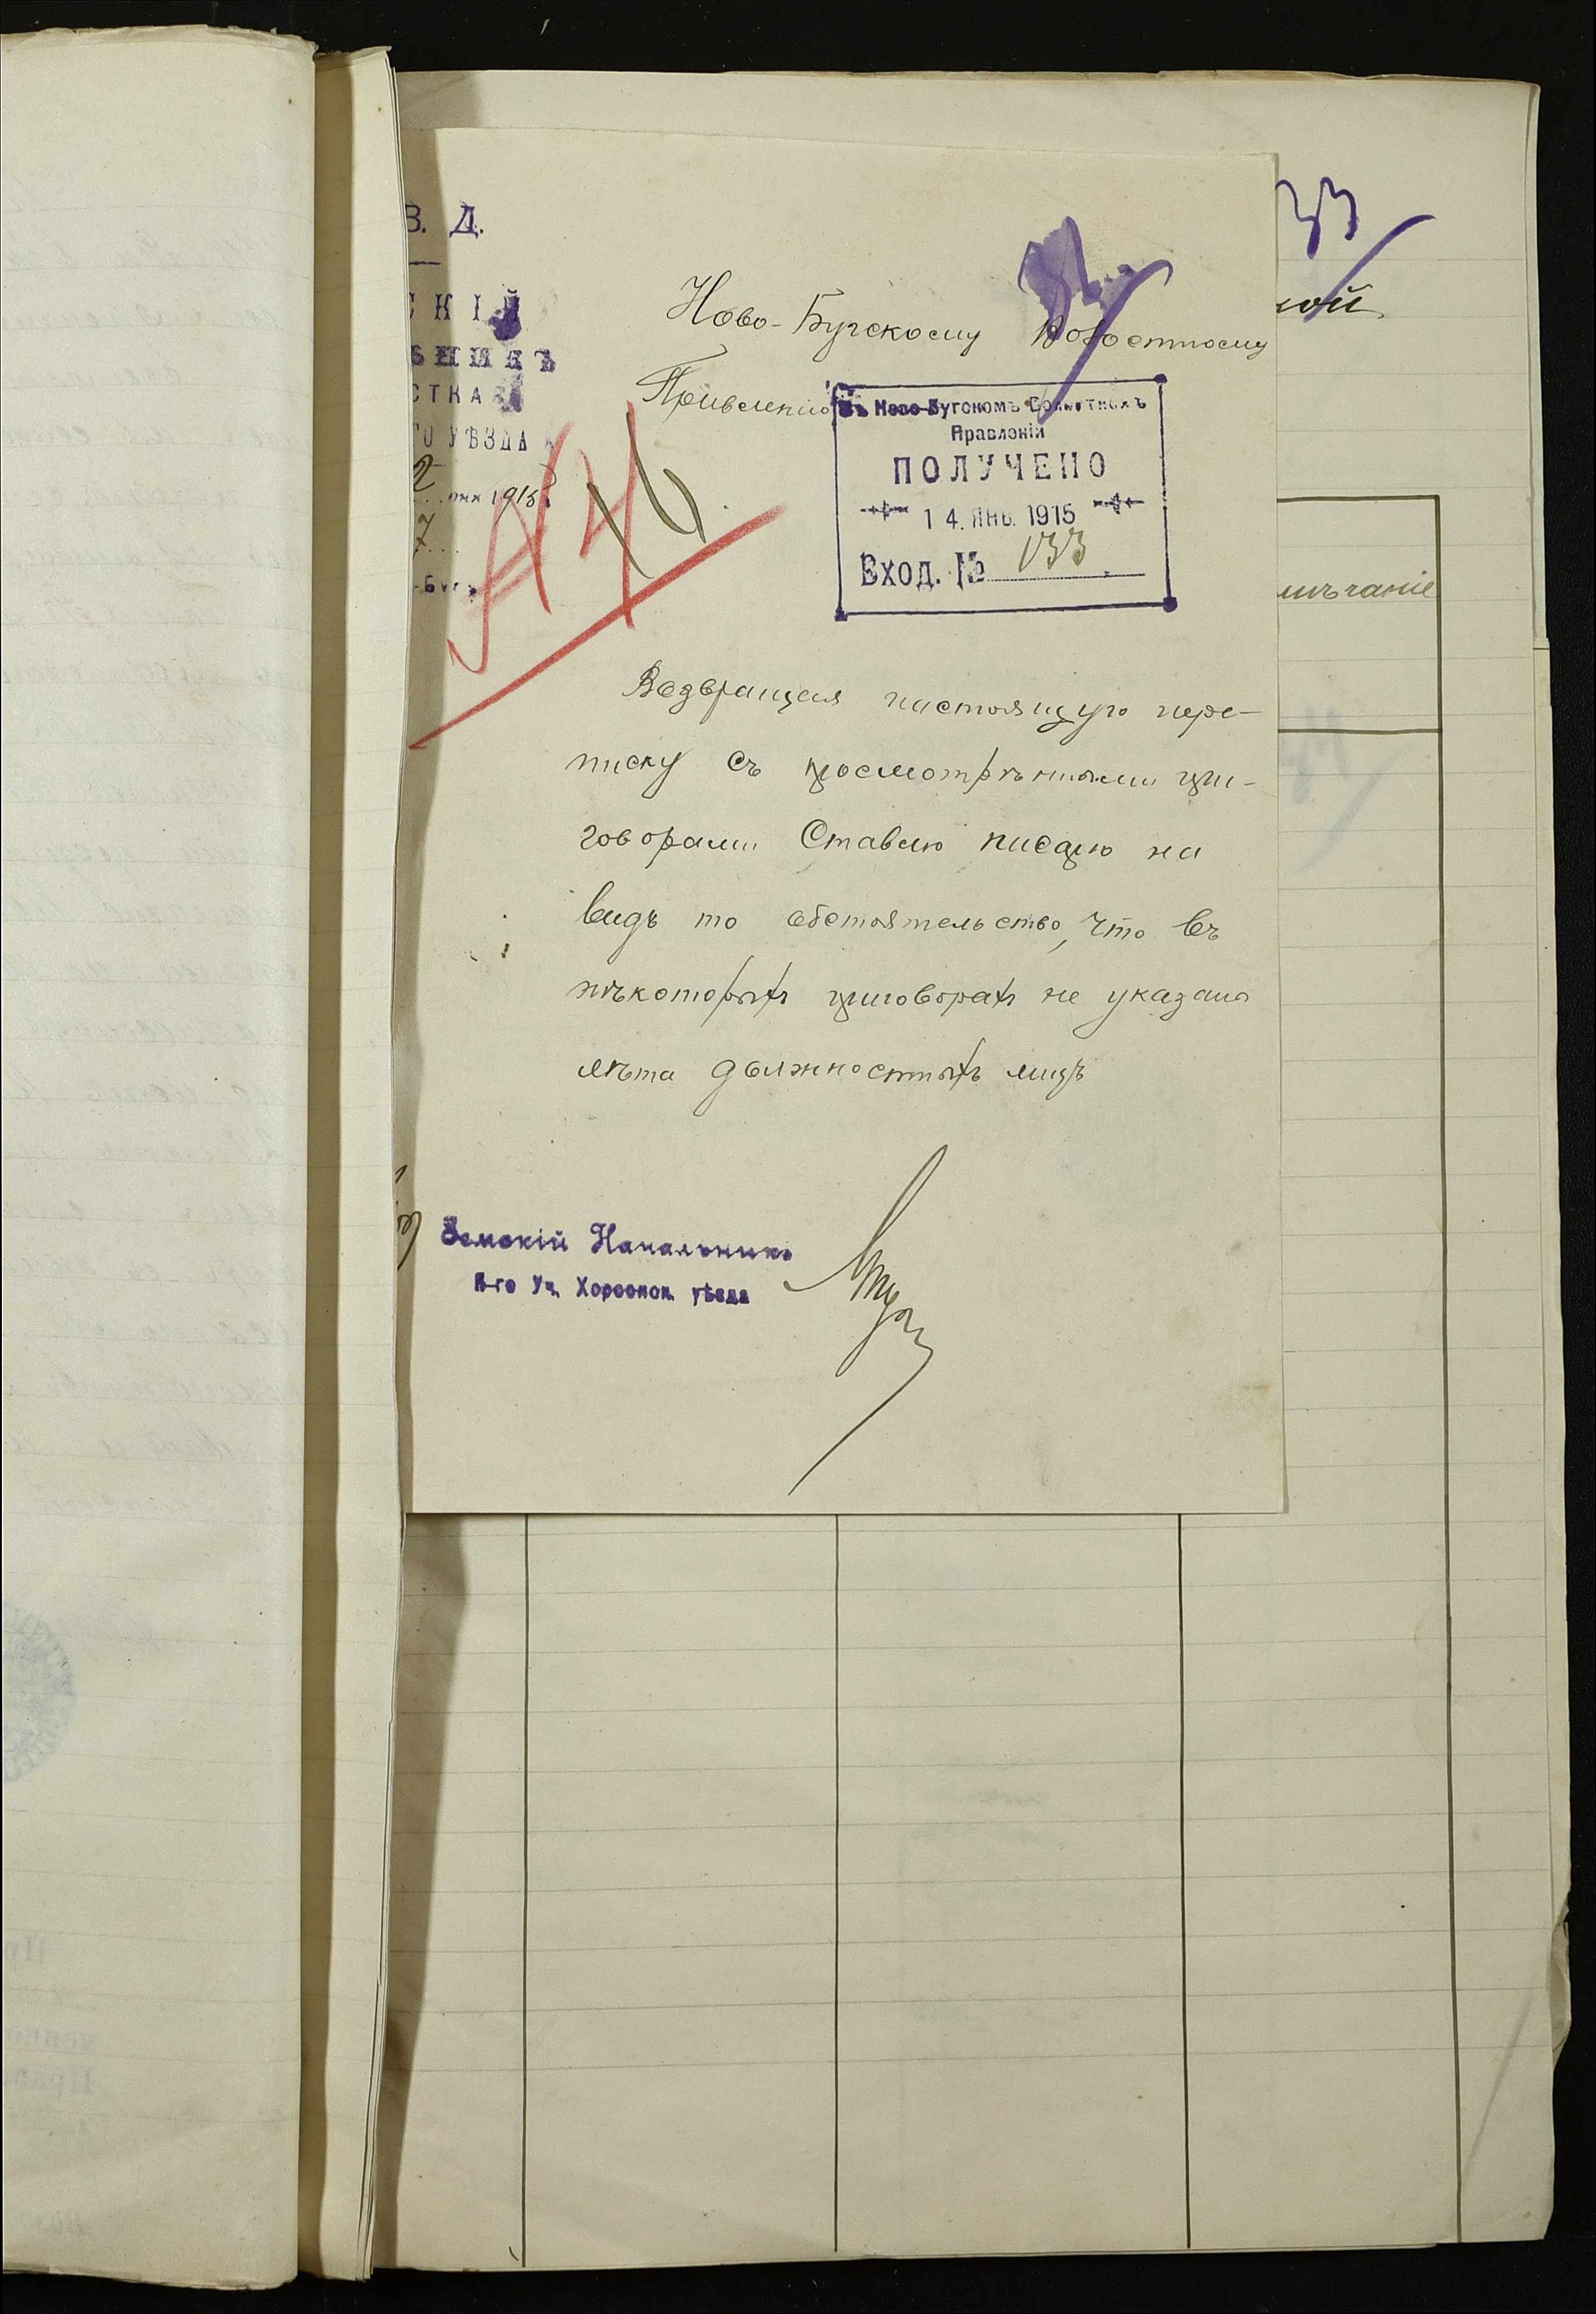 В. Д.
СКІЙ
ЬНИКЪ
СТКА
ГО УѢЗДА
2
1915
7
33
Ново-Бугскому Волостному
Правленію
Въ Ново-Бугскомъ Волостномъ
Правленіи
ПОЛУЧЕНО
14. ЯНВ. 1915
Вход. № 133
кой
мѣчаніе
Возвращая настоящую пере-
писку съ просмотрѣнными при-
говорами Ставлю писарю на
видъ то обстоятельство, что въ
нѣкоторыхъ приговорахъ не указано
лѣта должностныхъ лицъ
Земскій Начальникъ
Уч. Херсонск. уѣзда